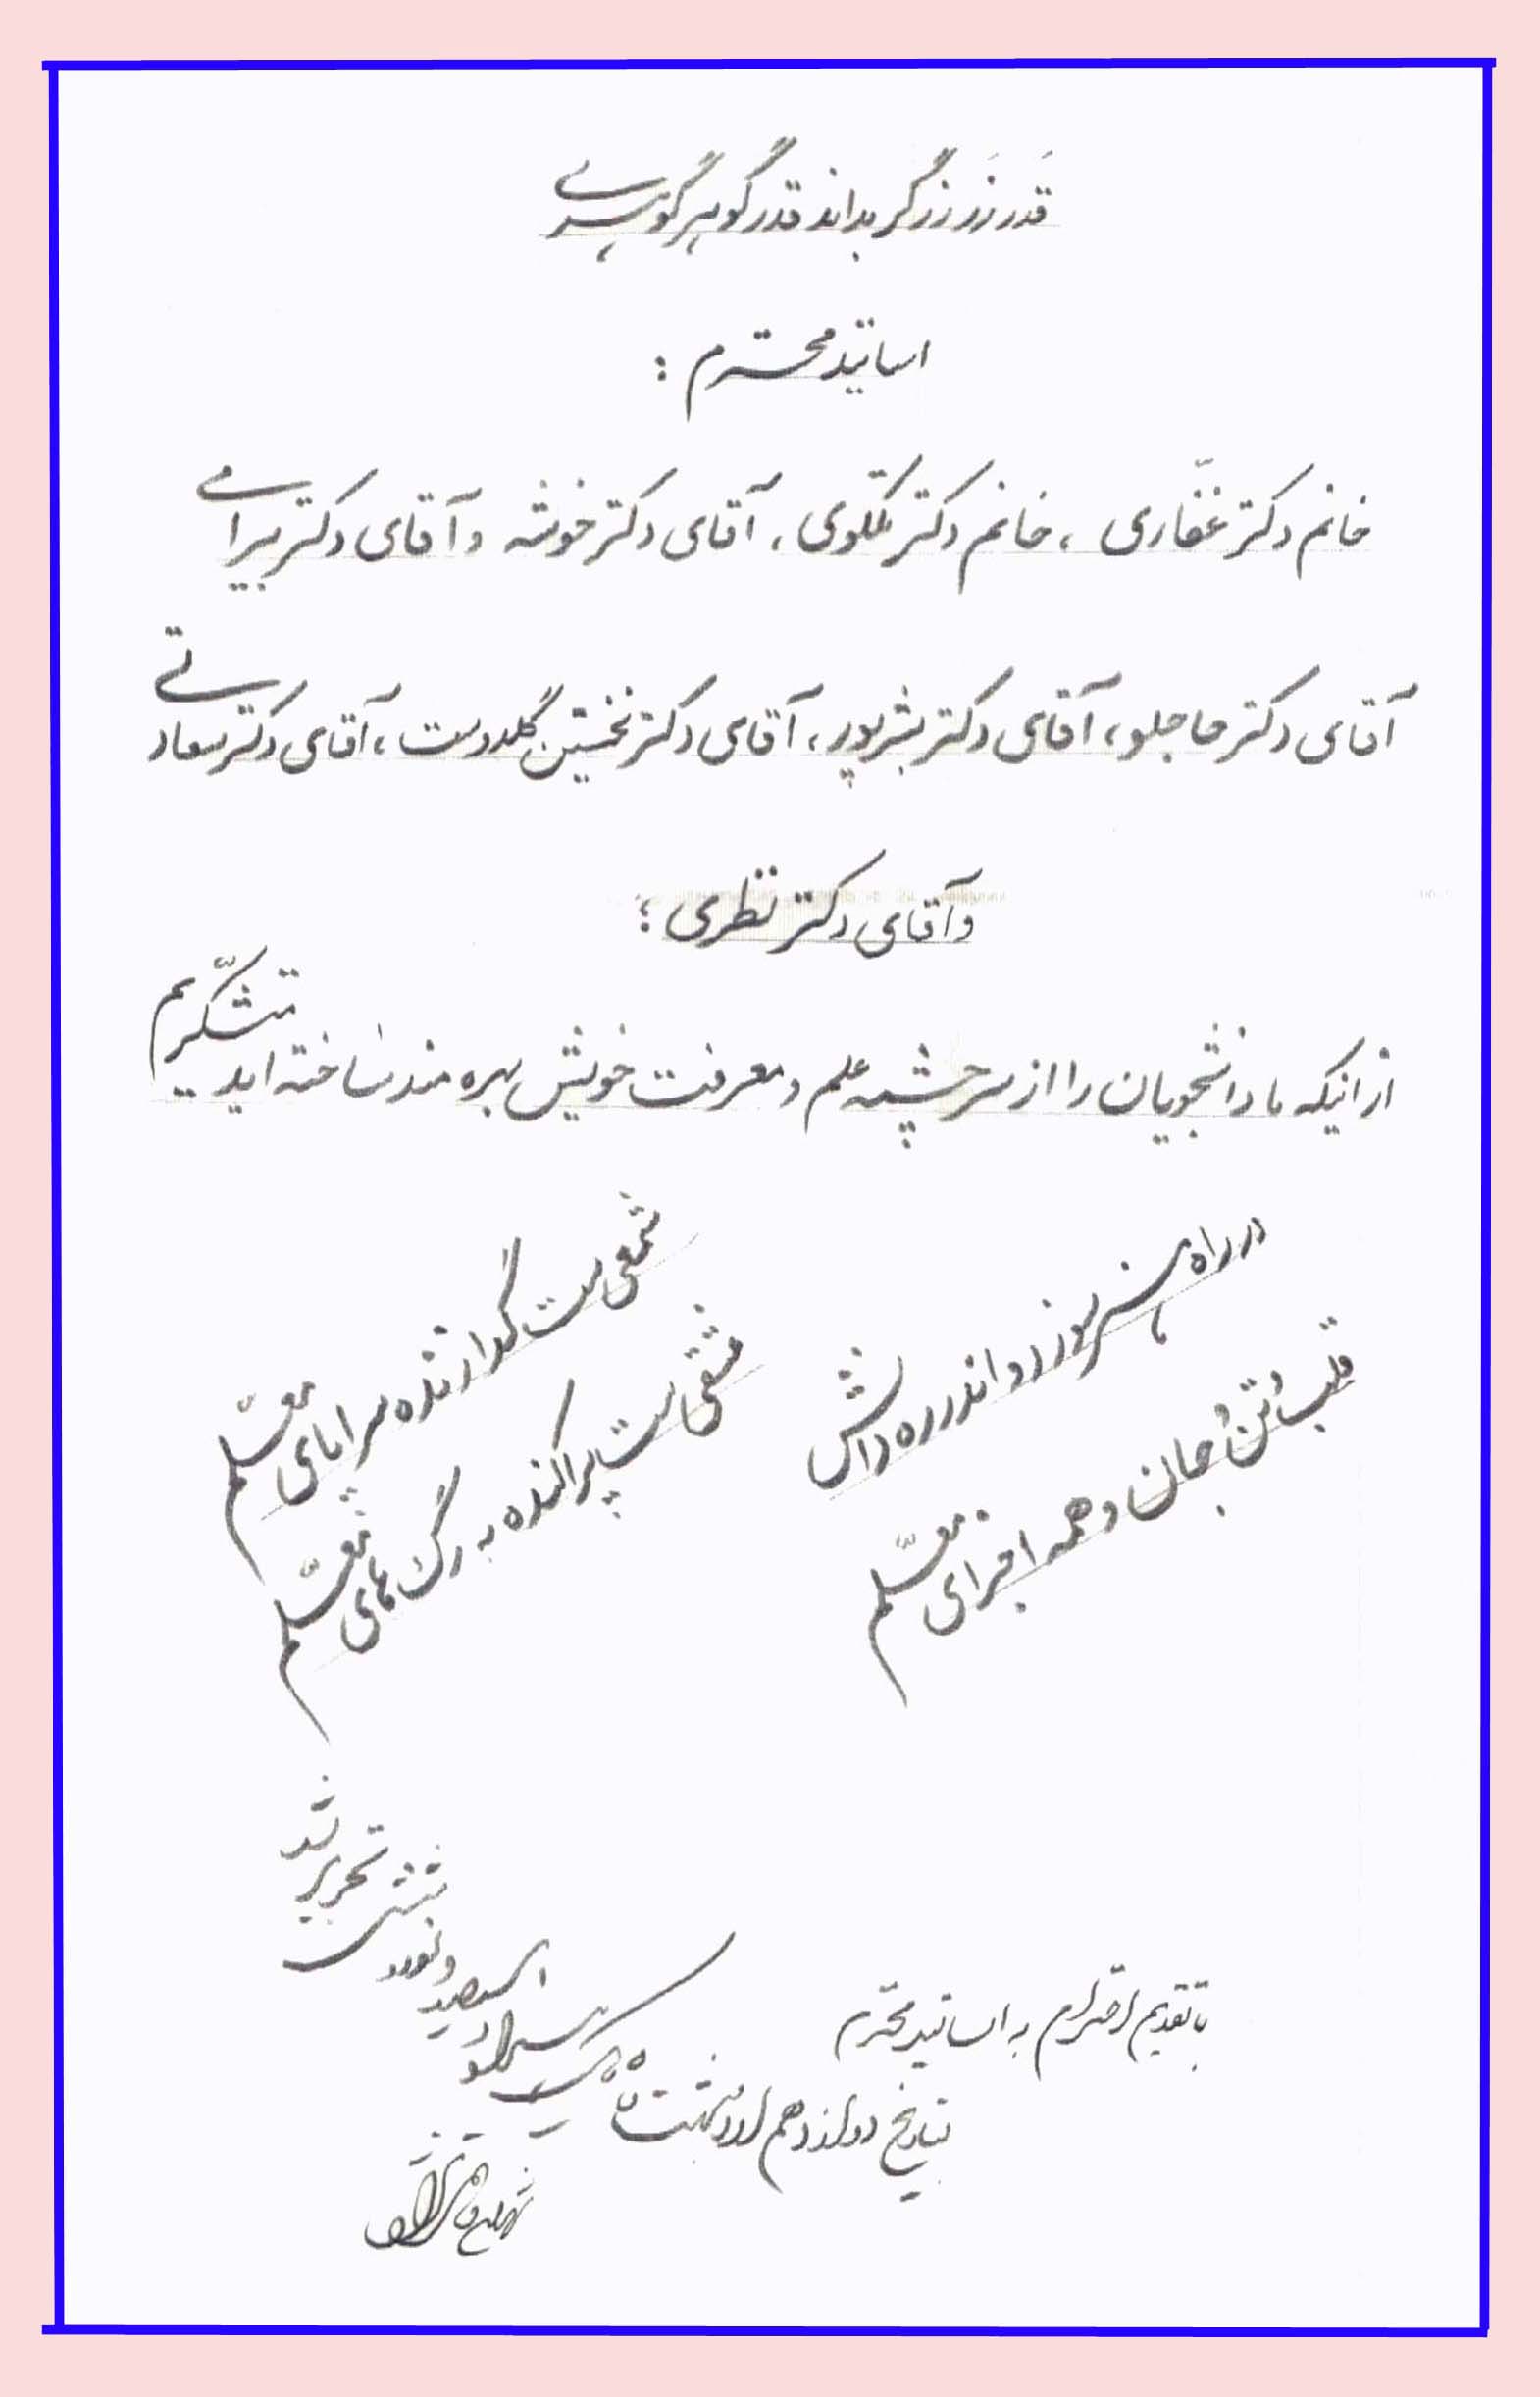 قَدر زَر زرگر بداند قدر گوهر گوهری
اساتید محترم :
خانم دکتر غفّاری ، خانم دکتر ، آقای دکتر خوشه و آقای دکتر بیرامی
آقای دکتر حاجلو، آقای دکتر بشرپور، آقای دکتر نخستین گلدوست، آقای دکتر سعادتی
و آقای دکتر نظری ؛
از اینکه ما دانشجویان را از سرچشمه علم و معرفت خویش بهره مند ساخته اید .. متشکّریم
در راه هنر سوزد و اندر ره دانش
شمعی ست گدازنده سراپای معلّم
قلب و تن و جان و همه اجزای معلّم
عشقی ست پراکنده به رگ های معلّم
با تقدیم احترام به اساتید محترم
بتاریخ دوازدهم اردیبهشت ماه یکهزار و سیصد و نود و شش تحریر شد